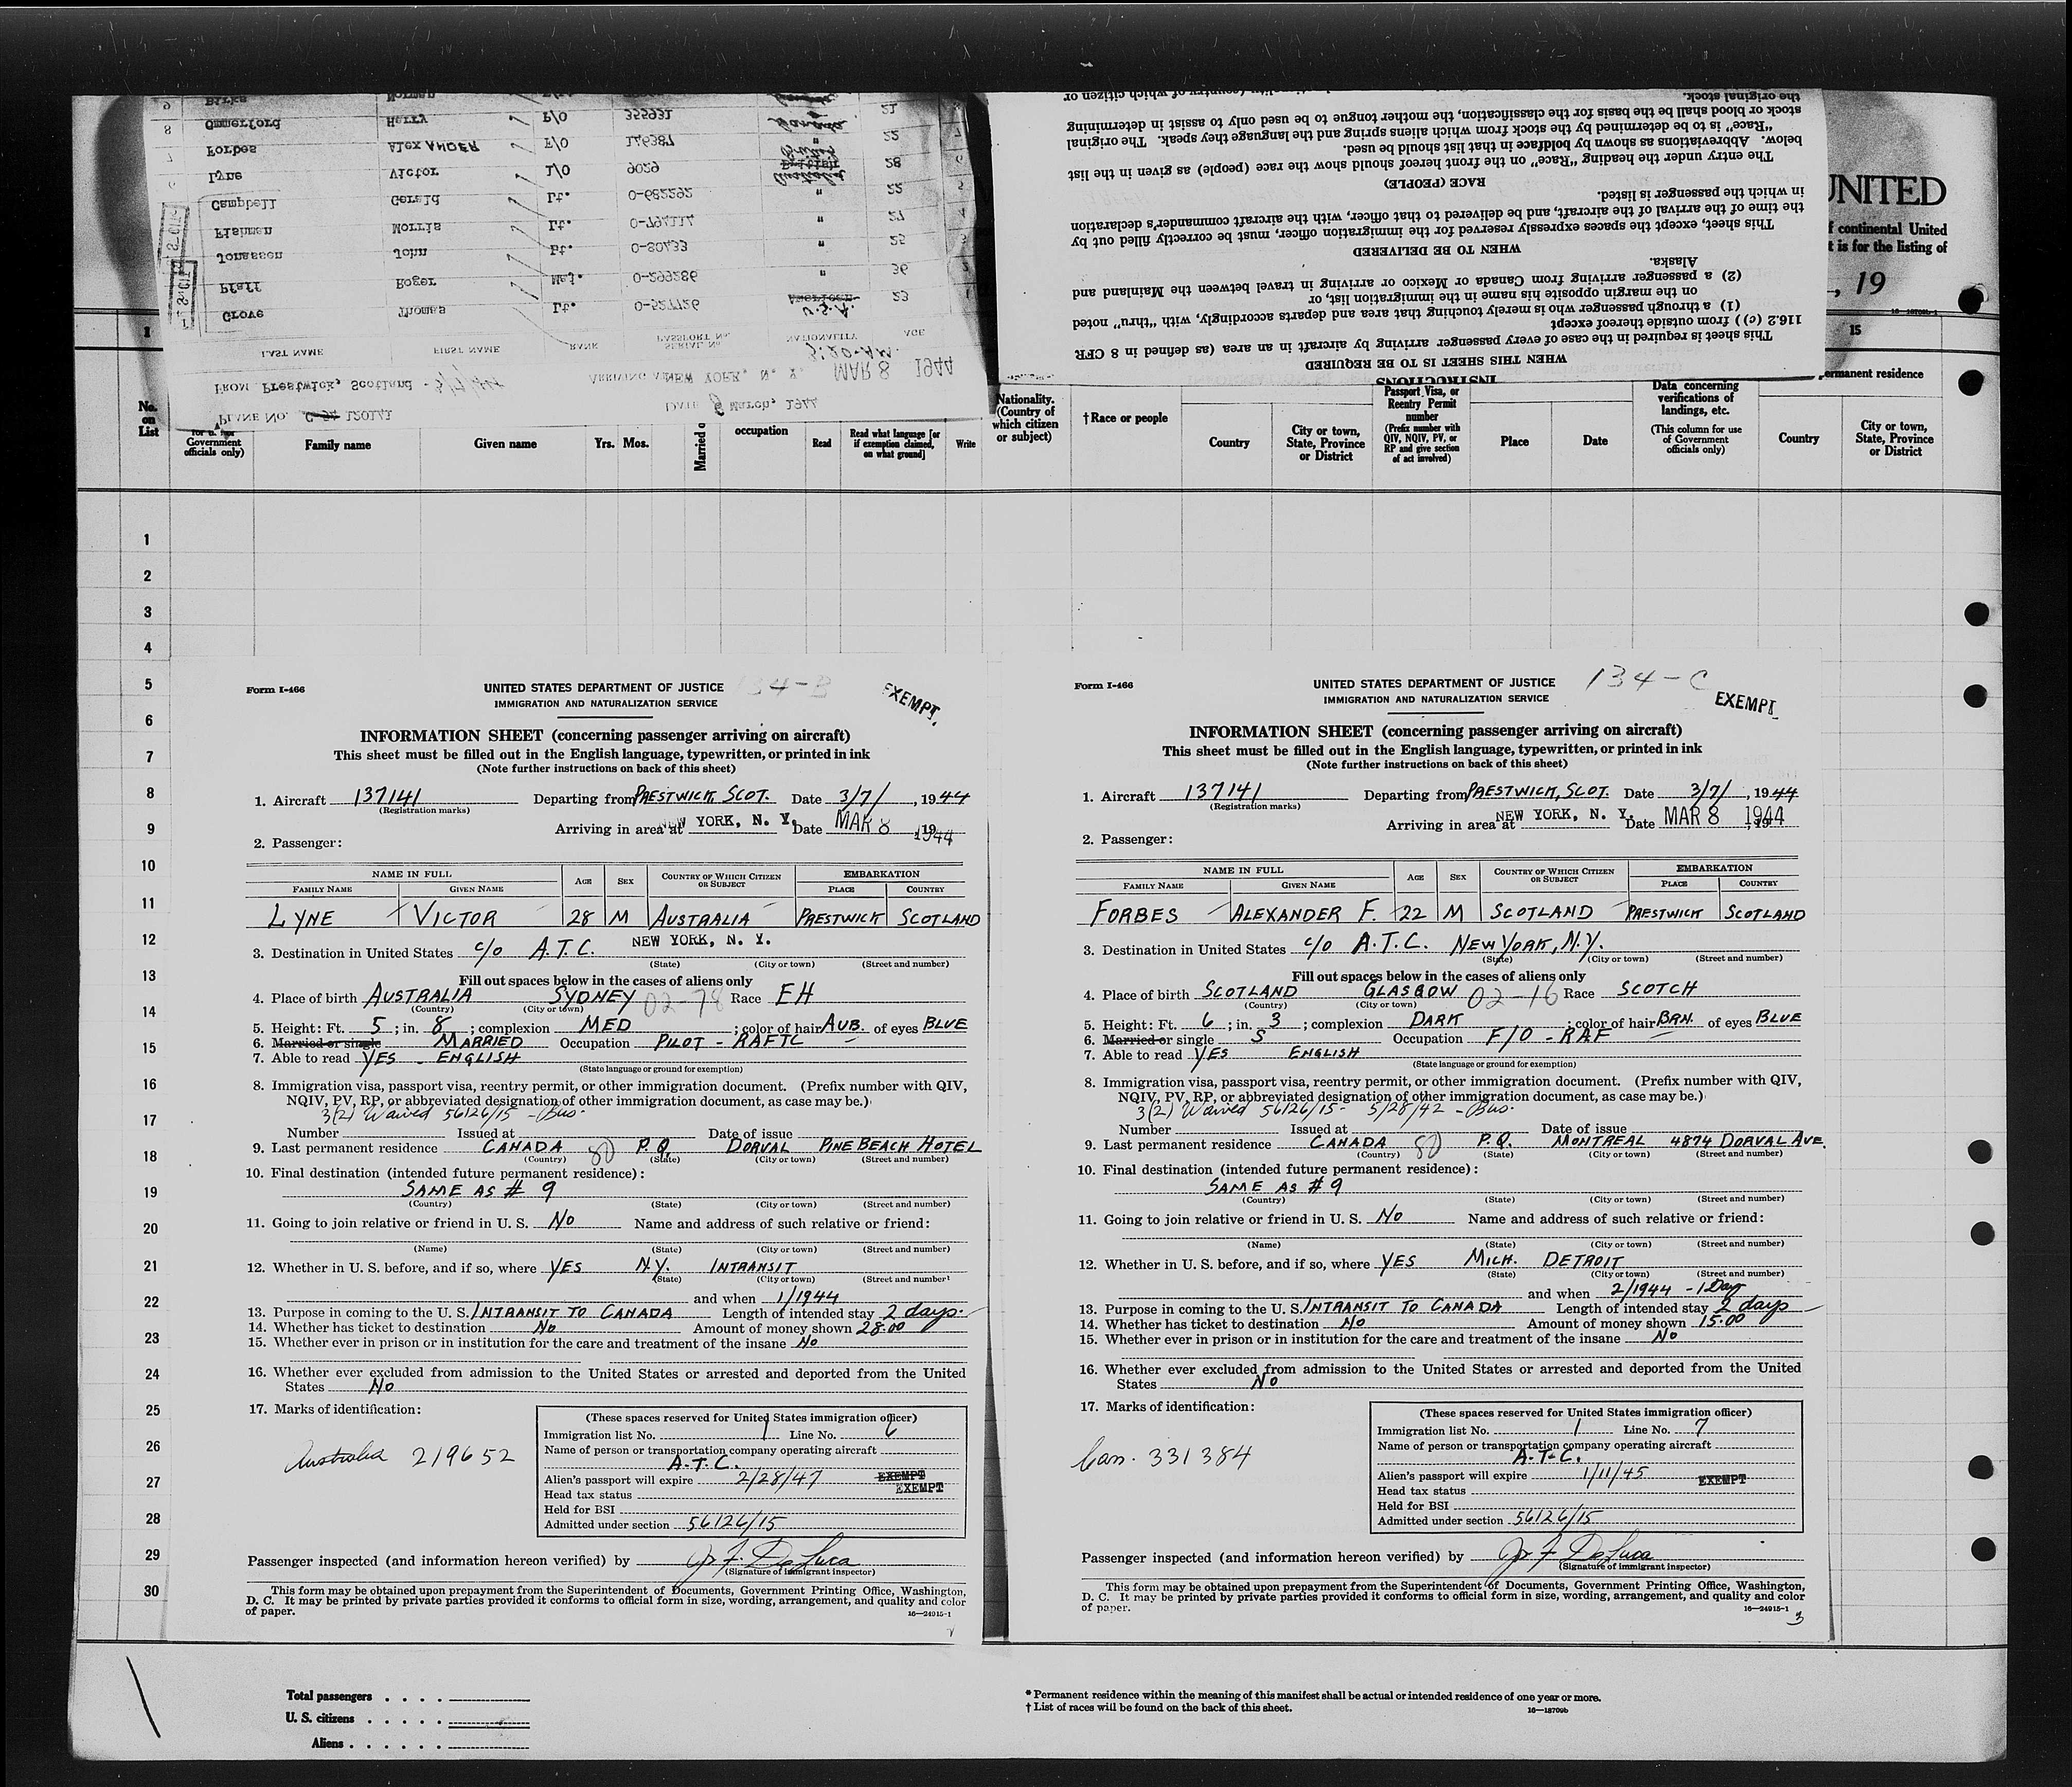 9 Birks Norman
8 Ommerford Harry F/O 355931 Canada 21
7 Forbes Alex ANDER F/O 146387 British 22
6 Lyne Victor 1/O 9029 British Australia 28
5 Campbell Gerald Lt. 0-682292 " 22
4 Fishman Morris Lt. 0-794114 " 27
3 Jonassen John Lt. 0-80433 " 25
2 Pfaff Roger Maj. 0-299286 " 36
1 Grove Thomas Lt. 0-527726 American U.S.A. 23
LAST NAME FIRST NAME RANK SERIAL No. PASSPORT No. NATIONALITY AGE
3:20 AM.
FROM Prestwick, Scotland - 3/7/44 ARRIVING NEW YORK, N. Y. MAR 8 1944
PLANE NO. C-54 DATE 8 March, 1944
INSTRUCTIONS
WHEN THIS SHEET IS TO BE REQUIRED
This sheet is required in the case of every passenger arriving by aircraft in an area (as defined in 8 CFR
116.2 (c) ) from outside thereof except
(1) a through passenger who is merely touching that area and departs accordingly, with "thru" noted
on the margin opposite his name in the immigration list, or
(2) a passenger arriving from Canada or Mexico or arriving in travel between the Mainland and
Alaska.
WHEN TO BE DELIVERED
This sheet, except the spaces expressly reserved for the immigration officer, must be correctly filled out by
the time of the arrival of the aircraft, and be delivered to that officer, with the aircraft commander's declaration
in which the passenger is listed.
RACE (PEOPLE)
The entry under the heading "Race" on the front hereof should show the race (people) as given in the list
below. Abbreviations as shown by boldface in that list should be used.
"Race" is to be determined by the stock from which aliens spring and the language they speak. The original
stock or blood shall be the basis for the classification, the mother tongue to be used only to assist in determining
the original stock.
UNITED
f continental United
t is for the listing of
, 19
15
ermanent residence
No. on List
Government officials only)
Family name
Given name
Yrs. Mos.
Married o
occupation
Read
Read what language [or if exemption claimed, on what ground]
Write
Nationality. (Country of which citizen or subject)
†Race or people
Country
City or town, State, Province or District
Passport Visa, or Reentry Permit number
(Prefix number with QIV, NQIV, PV, or RP and give section of act involved)
Place
Date
Data concerning verifications of landings, etc.
(This column for use of Government officials only)
Country
City or town, State, Province or District
1
2
3
4
5
6
7
8
9
10
11
12
13
14
15
16
17
18
19
20
21
22
23
24
25
26
27
28
29
30
Form I-466
134-B
UNITED STATES DEPARTMENT OF JUSTICE
EXEMPT
IMMIGRATION AND NATURALIZATION SERVICE
INFORMATION SHEET (concerning passenger arriving on aircraft)
This sheet must be filled out in the English language, typewritten, or printed in ink
(Note further instructions on back of this sheet)
1. Aircraft 137141 Departing from PRESTWICK, SCOT. Date 3/7/, 1944
(Registration marks)
Arriving in area at NEW YORK, N. Y. Date MAR 8, 19 1944
2. Passenger:
NAME IN FULL AGE SEX COUNTRY OF WHICH CITIZEN OR SUBJECT EMBARKATION
FAMILY NAME GIVEN NAME PLACE COUNTRY
LYNE VICTOR 28 M AUSTRALIA PRESTWICK SCOTLAND
3. Destination in United States c/o A.T.C. NEW YORK, N. Y.
(State) (City or town) (Street and number)
Fill out spaces below in the cases of aliens only
4. Place of birth AUSTRALIA SYDNEY 02-78 Race EH
(Country) (City or town)
5. Height: Ft. 5; in. 8; complexion MED; color of hair AUB. of eyes BLUE
6. Married or single MARRIED Occupation PILOT - RAFTC
7. Able to read YES - ENGLISH
(State language or ground for exemption)
8. Immigration visa, passport visa, reentry permit, or other immigration document. (Prefix number with QIV,
NQIV, PV, RP, or abbreviated designation of other immigration document, as case may be.)
3(2) Waived 56126/15 - Bus.
Number Issued at Date of issue
9. Last permanent residence CANADA 80 P.Q. DORVAL PINE BEACH HOTEL
(Country) (State) (City or town) (Street and number)
10. Final destination (intended future permanent residence):
SAME AS # 9
(Country) (State) (City or town) (Street and number)
11. Going to join relative or friend in U. S. NO Name and address of such relative or friend:
(Name) (State) (City or town) (Street and number)
12. Whether in U. S. before, and if so, where YES N.Y. INTRANSIT
(State) (City or town) (Street and number)
and when 1/1944
13. Purpose in coming to the U. S. INTRANSIT TO CANADA Length of intended stay 2 days.
14. Whether has ticket to destination NO Amount of money shown 28.00
15. Whether ever in prison or in institution for the care and treatment of the insane NO
16. Whether ever excluded from admission to the United States or arrested and deported from the United
States NO
17. Marks of identification:
Australia 219652
(These spaces reserved for United States immigration officer)
Immigration list No. 1 Line No. 6
Name of person or transportation company operating aircraft
A.T.C.
Alien's passport will expire 2/28/47 EXEMPT
Head tax status EXEMPT
Held for BSI
Admitted under section 56126/15
Passenger inspected (and information hereon verified) by Jos F. DeLuca
(Signature of immigrant inspector)
This form may be obtained upon prepayment from the Superintendent of Documents, Government Printing Office, Washington,
D. C. It may be printed by private parties provided it conforms to official form in size, wording, arrangement, and quality and color
of paper.
16—24915-1
Form I-466
134-C
UNITED STATES DEPARTMENT OF JUSTICE
EXEMPT
IMMIGRATION AND NATURALIZATION SERVICE
INFORMATION SHEET (concerning passenger arriving on aircraft)
This sheet must be filled out in the English language, typewritten, or printed in ink
(Note further instructions on back of this sheet)
1. Aircraft 137141 Departing from PRESTWICK, SCOT. Date 3/7/, 1944
(Registration marks)
Arriving in area at NEW YORK, N. Y. Date MAR 8, 19 1944
2. Passenger:
NAME IN FULL AGE SEX COUNTRY OF WHICH CITIZEN OR SUBJECT EMBARKATION
FAMILY NAME GIVEN NAME PLACE COUNTRY
FORBES ALEXANDER F. 22 M SCOTLAND PRESTWICK SCOTLAND
3. Destination in United States c/o A.T.C. NEW YORK, N.Y.
(State) (City or town) (Street and number)
Fill out spaces below in the cases of aliens only
4. Place of birth SCOTLAND GLASGOW 02-16 Race SCOTCH
(Country) (City or town)
5. Height: Ft. 6; in. 3; complexion DARK; color of hair BRN. of eyes BLUE
6. Married or single S Occupation F/O - RAF
7. Able to read YES ENGLISH
(State language or ground for exemption)
8. Immigration visa, passport visa, reentry permit, or other immigration document. (Prefix number with QIV,
NQIV, PV, RP, or abbreviated designation of other immigration document, as case may be.)
3(2) Waived 56126/15- 5/28/42 - Bus.
Number Issued at Date of issue
9. Last permanent residence CANADA 80 P.Q. MONTREAL 4874 DORVAL AVE.
(Country) (State) (City or town) (Street and number)
10. Final destination (intended future permanent residence):
SAME AS # 9
(Country) (State) (City or town) (Street and number)
11. Going to join relative or friend in U. S. NO Name and address of such relative or friend:
(Name) (State) (City or town) (Street and number)
12. Whether in U. S. before, and if so, where YES MICH. DETROIT
(State) (City or town) (Street and number)
and when 2/1944 - 1 Day
13. Purpose in coming to the U. S. INTRANSIT TO CANADA Length of intended stay 2 days
14. Whether has ticket to destination NO Amount of money shown 15.00
15. Whether ever in prison or in institution for the care and treatment of the insane NO
16. Whether ever excluded from admission to the United States or arrested and deported from the United
States NO
17. Marks of identification:
Can. 331384
(These spaces reserved for United States immigration officer)
Immigration list No. 1 Line No. 7
Name of person or transportation company operating aircraft
A.T.C.
Alien's passport will expire 1/11/45 EXEMPT
Head tax status
Held for BSI
Admitted under section 56126/15
Passenger inspected (and information hereon verified) by Jos F DeLuca
(Signature of immigrant inspector)
This form may be obtained upon prepayment from the Superintendent of Documents, Government Printing Office, Washington,
D. C. It may be printed by private parties provided it conforms to official form in size, wording, arrangement, and quality and color
of paper.
16—24915-1
3
Total passengers . . . .
U. S. citizens . . . . .
Aliens . . . . . .
* Permanent residence within the meaning of this manifest shall be actual or intended residence of one year or more.
† List of races will be found on the back of this sheet.
16—18709b